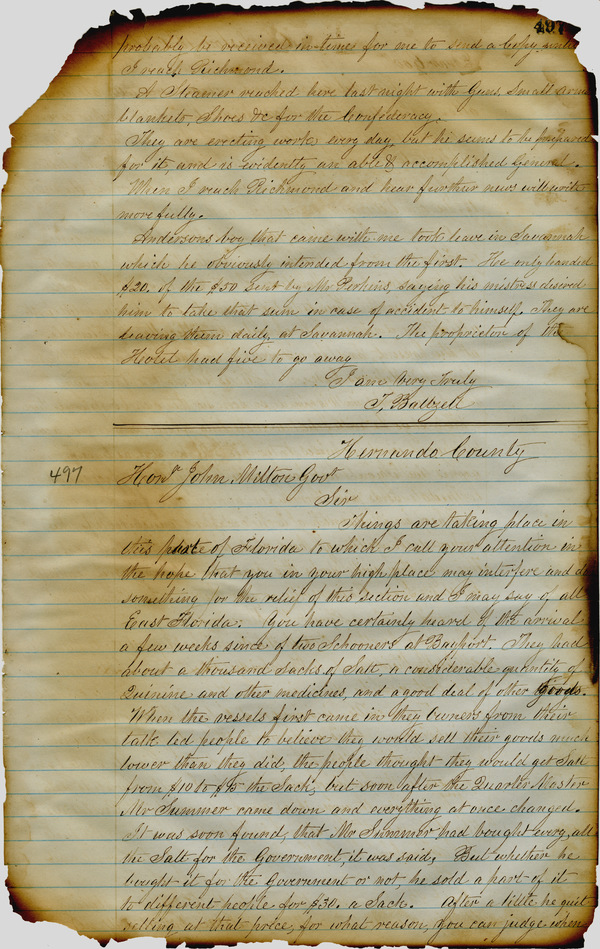 497
probably be received in time for me to send a Copy until
I reach Richmond.
A Steamer reached here last night with Guns, Small Arms
blankets, Shoes &c for the Confederacy.
They are erecting work every day, but he seems to be prepared
for it, and is evidently an able & accomplished General.
When I reach Richmond and hear further news will write
more fully.
Andersons boy that came with me took leave in Savannah
which he obviously intended from the first. He only handed
$20. of the $50 sent by Mr Perkins, saying his mistress desired
him to take that sum in case of accident to himself. They are
leaving them daily, at Savannah. The proprietor of the
Hotel had five to go away
I am Very Truly
T, Baltzell
Hernando County
497
Honr John Milton Govr
Sir
Things are taking place in
this parte of Florida to which I call your attention in
the hope that you in your high place may interfere and do
something for the relief of this section and I may say of all
East Florida. You have certainly heard of the arrival
a few weeks since of two Schooners at Bayport. They had
about a thousand sacks of Salt, a considerable quantity of
Quinine and other medicines, and a good deal of other goods.
When the vessels first came in they owners from their
talk led people to believe they would sell their goods much
lower than they did, the people thought they would get Salt
from $10 to $15 the Sack, but soon after the Quarter Master
Mr Summer came down and everything at once changed.
It was soon found, that Mr Summer had bought every, all
the Salt for the Government, it was said. But whether he
bought it for the Government or not, he sold a part of it
to different people for $30. a Sack. After a little he quit
selling at that price, for what reason, you can judge when